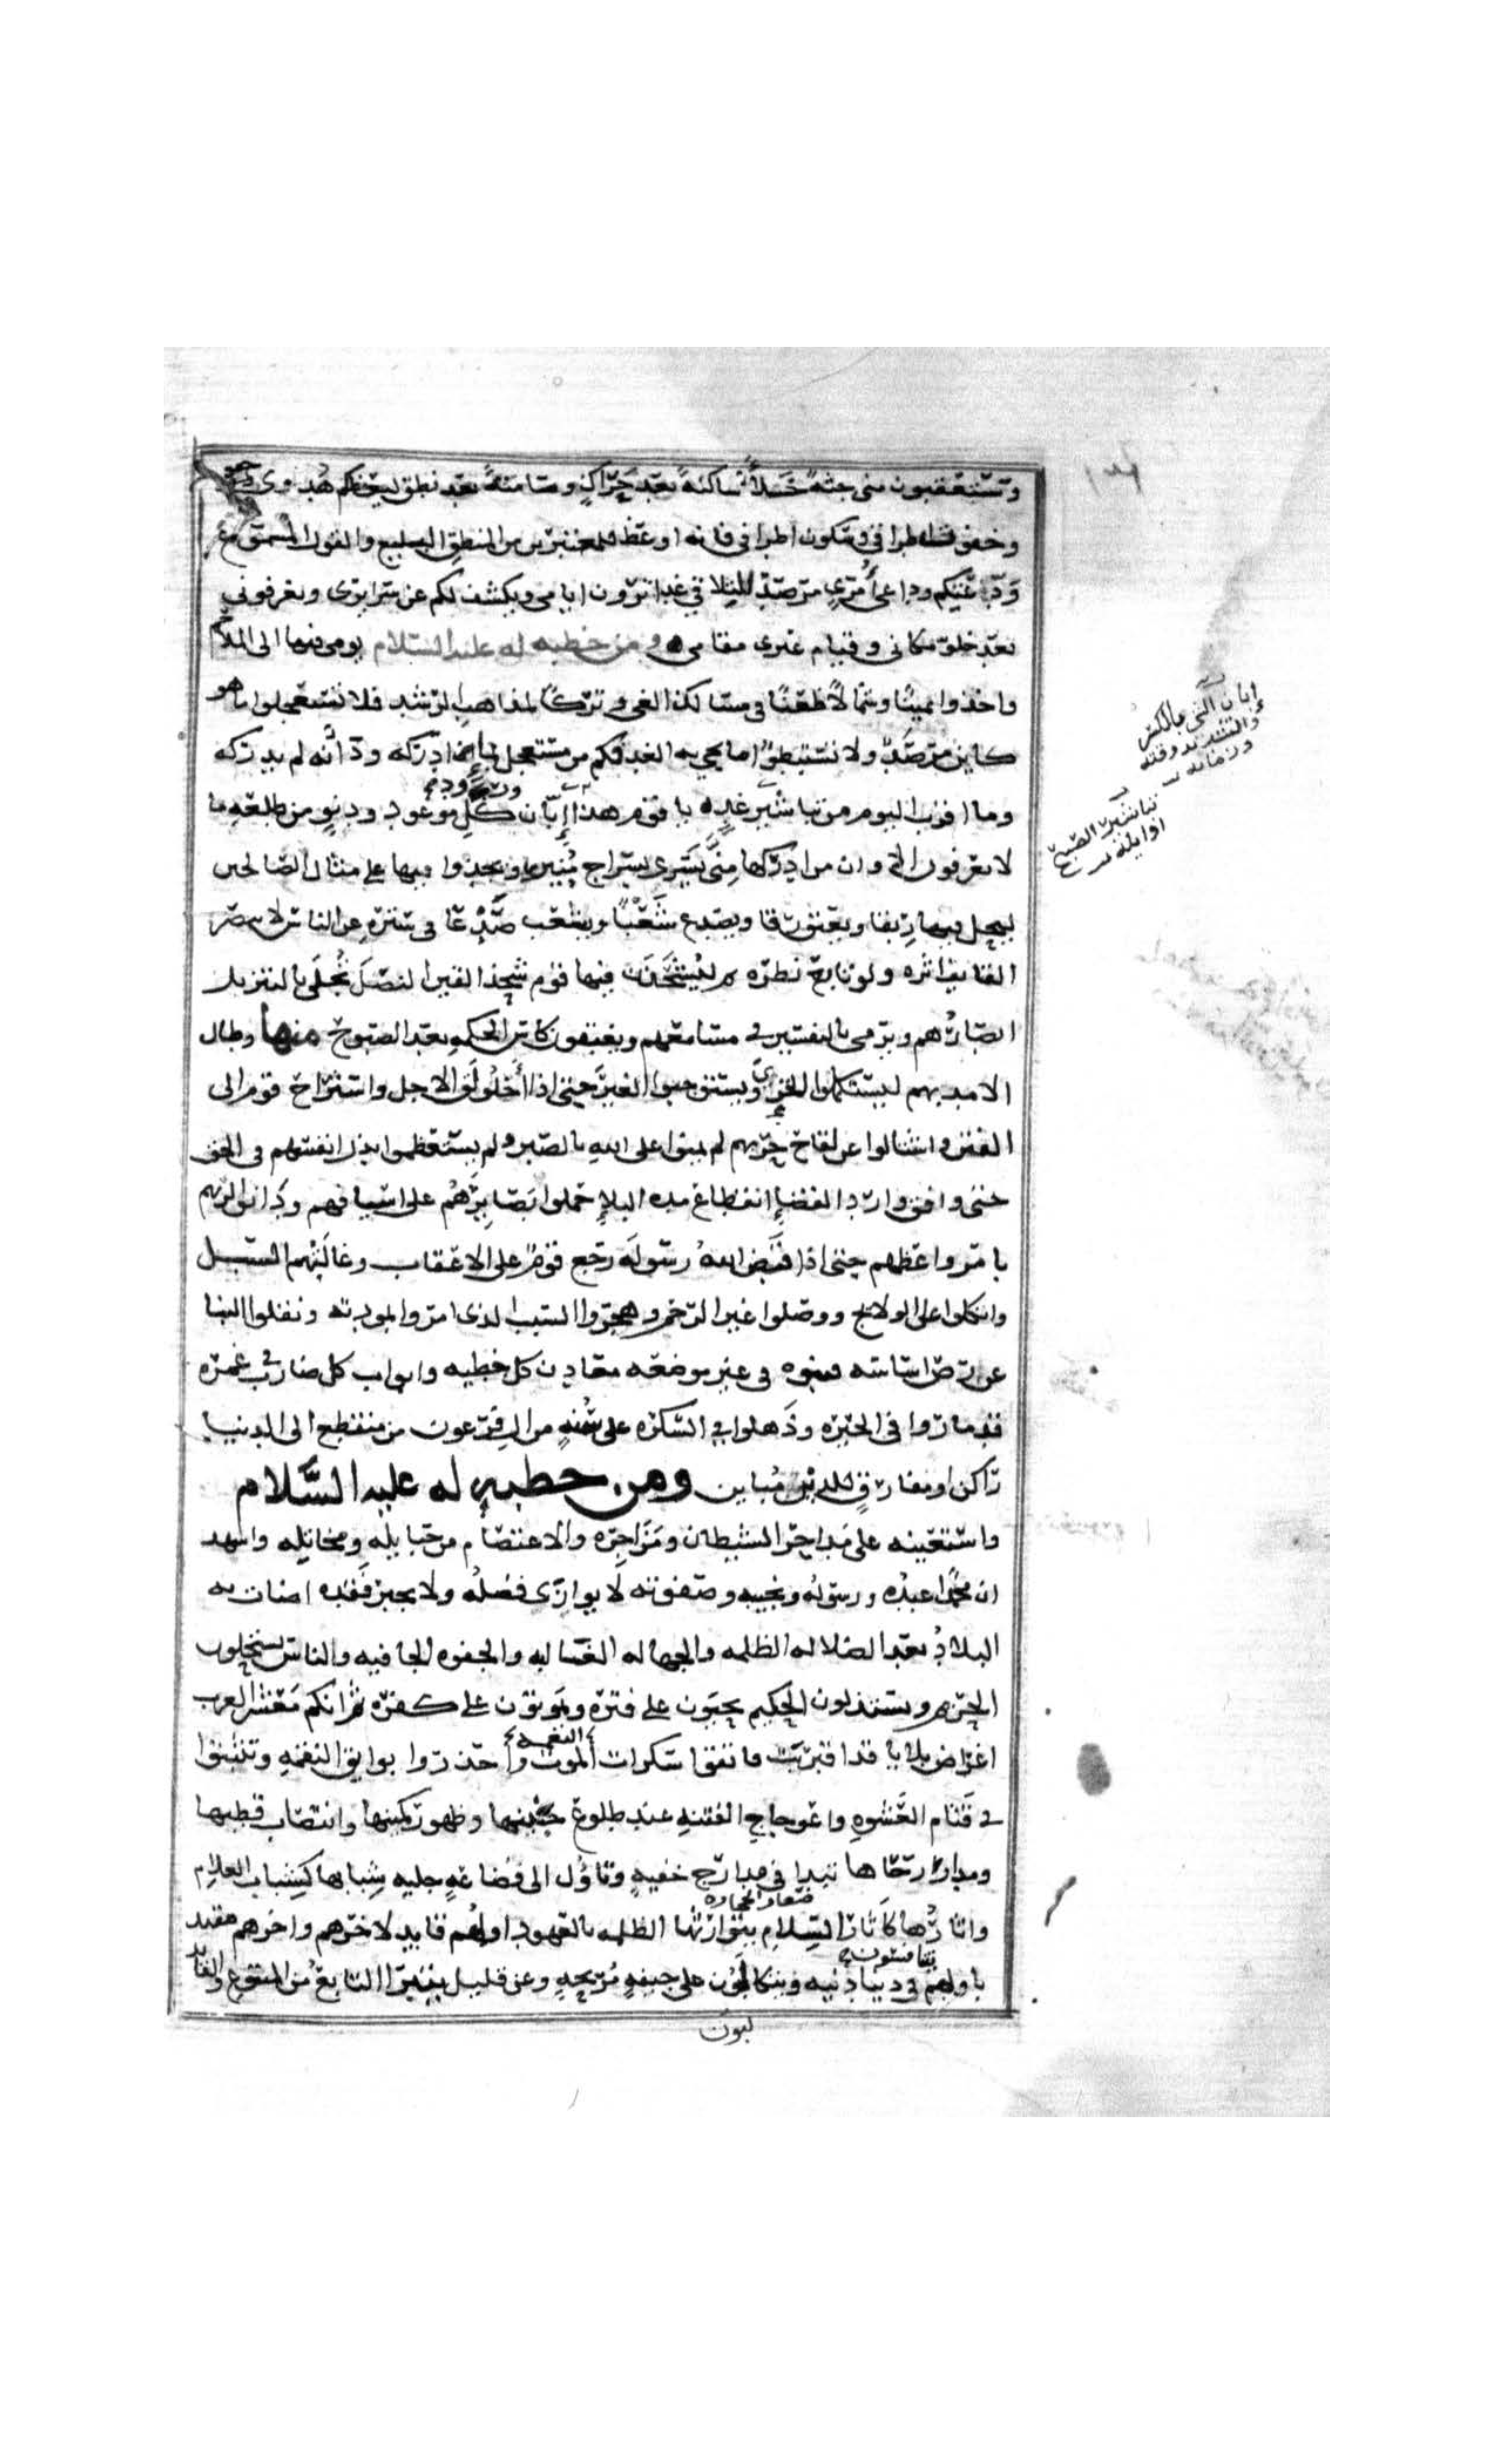 وستعقبون مني جثة خلاء ساكنة بعد حراك وصامتة بعد نطق ليعظكم هدوي
وخفوت اطرافي وسكون اطرافي فانه اوعظ للمعتبرين من المنطق البليغ والقول المسموع
وداعيكم وداع امرئ مرصد للتلاقي غدا ترون ايامي ويكشف لكم عن سرايري وتعرفوني
بعد خلو مكاني وقيام غيري مقامي ومن خطبه له عليه السلام يومى فيها الى الملاحم
واخذوا يمينا وشمالا ظعنا في مسالك الغي وتركا لمذاهب الرشد فلا تستعجلوا ما هو
كاين مرصد ولا تستبطئوا ما يجي به الغد فكم من مستعجل بما ان ادركه ود انه لم يدركه
وما اقرب اليوم من تباشير غد يا قوم هذا ابان كل موعود ودنو من طلعه ما
لا تعرفون الا وان من ادركها منا يسري بسراج منير ويحذوا فيها على مثال الصالحين
ليحل فيها ربقا ويعتق رقا ويصدع شعبا ويشعب صدعا في ستره عن الناس لا يبصر
القايف اثره ولو تابع نظره ثم ليشحذن فيها قوم شحذ القين النصل تجلى بالتنزيل
ابصارهم ويرمى بالتفسير في مسامعهم ويغبقون كاس الحكمه بعد الصبوح منها وطال
الامد بهم ليستكملوا الخزي ويستوجبوا الغير حتى اذا اخلولق الاجل واستراح قوم الى
الفتن واشتالوا عن لقاح حربهم لم يمنوا على الله بالصبر ولم يستعظموا بذل انفسهم في الحق
حتى وافق وارد القضاء انقطاع مده البلاء حملوا بصايرهم على اسيافهم ودانوا لربهم
بامر واعظهم حتى اذا قبض الله رسوله رجع قوم على الاعقاب وغالتهم السبل
واتكلوا على الولايج ووصلوا غير الرحم وهجروا السبب الذي امروا بمودته ونقلوا البنا
عن رص اساسه فبنوه في غير موضعه معادن كل خطيه وابواب كل ضارب في غمره
قد ماروا في الحيره وذهلوا في السكره على سنه من ال فرعون من منقطع الى الدنيا
راكن او مفارق للدين مباين ومن خطبه له عليه السلام
واستعينه على مداحر الشيطان ومزاجره والاعتصام من حبايله ومخاتله واشهد
ان محمدا عبده ورسوله ونجيبه وصفوته لا يوازى فضله ولا يجبر فقده اضات به
البلاد بعد الضلاله المظلمه والجهاله الغالبه والجفوه الجافيه والناس يستحلون
الحريم ويستذلون الحكيم يحيون على فتره ويموتون على كفره ثم انكم معشر العرب
اغراض بلايا قد اقتربت فاتقوا سكرات النعمه واحذروا بوايق النقمه وتثبتوا
في قتام العشوه واعوجاج الفتنه عند طلوع جنينها وظهور كمينها وانتصاب قطبها
ومدار رحاها تبدا في مدارج خفيه وتاول الى فضاعه جليه شبابها كشباب الغلام
واثارها كاثار السلام يتوارثها الظلمه بالعهود اولهم قايد لاخرهم واخرهم مقتد
باولهم يتنافسون في دنيا دنيه ويتكالبون على جيفه مريحه وعن قليل يتبرا التابع من المتبوع والقايد
ابان الشي بالكسر
والتشديد وقته
وزمانه
تباشير الصبح
اوايله